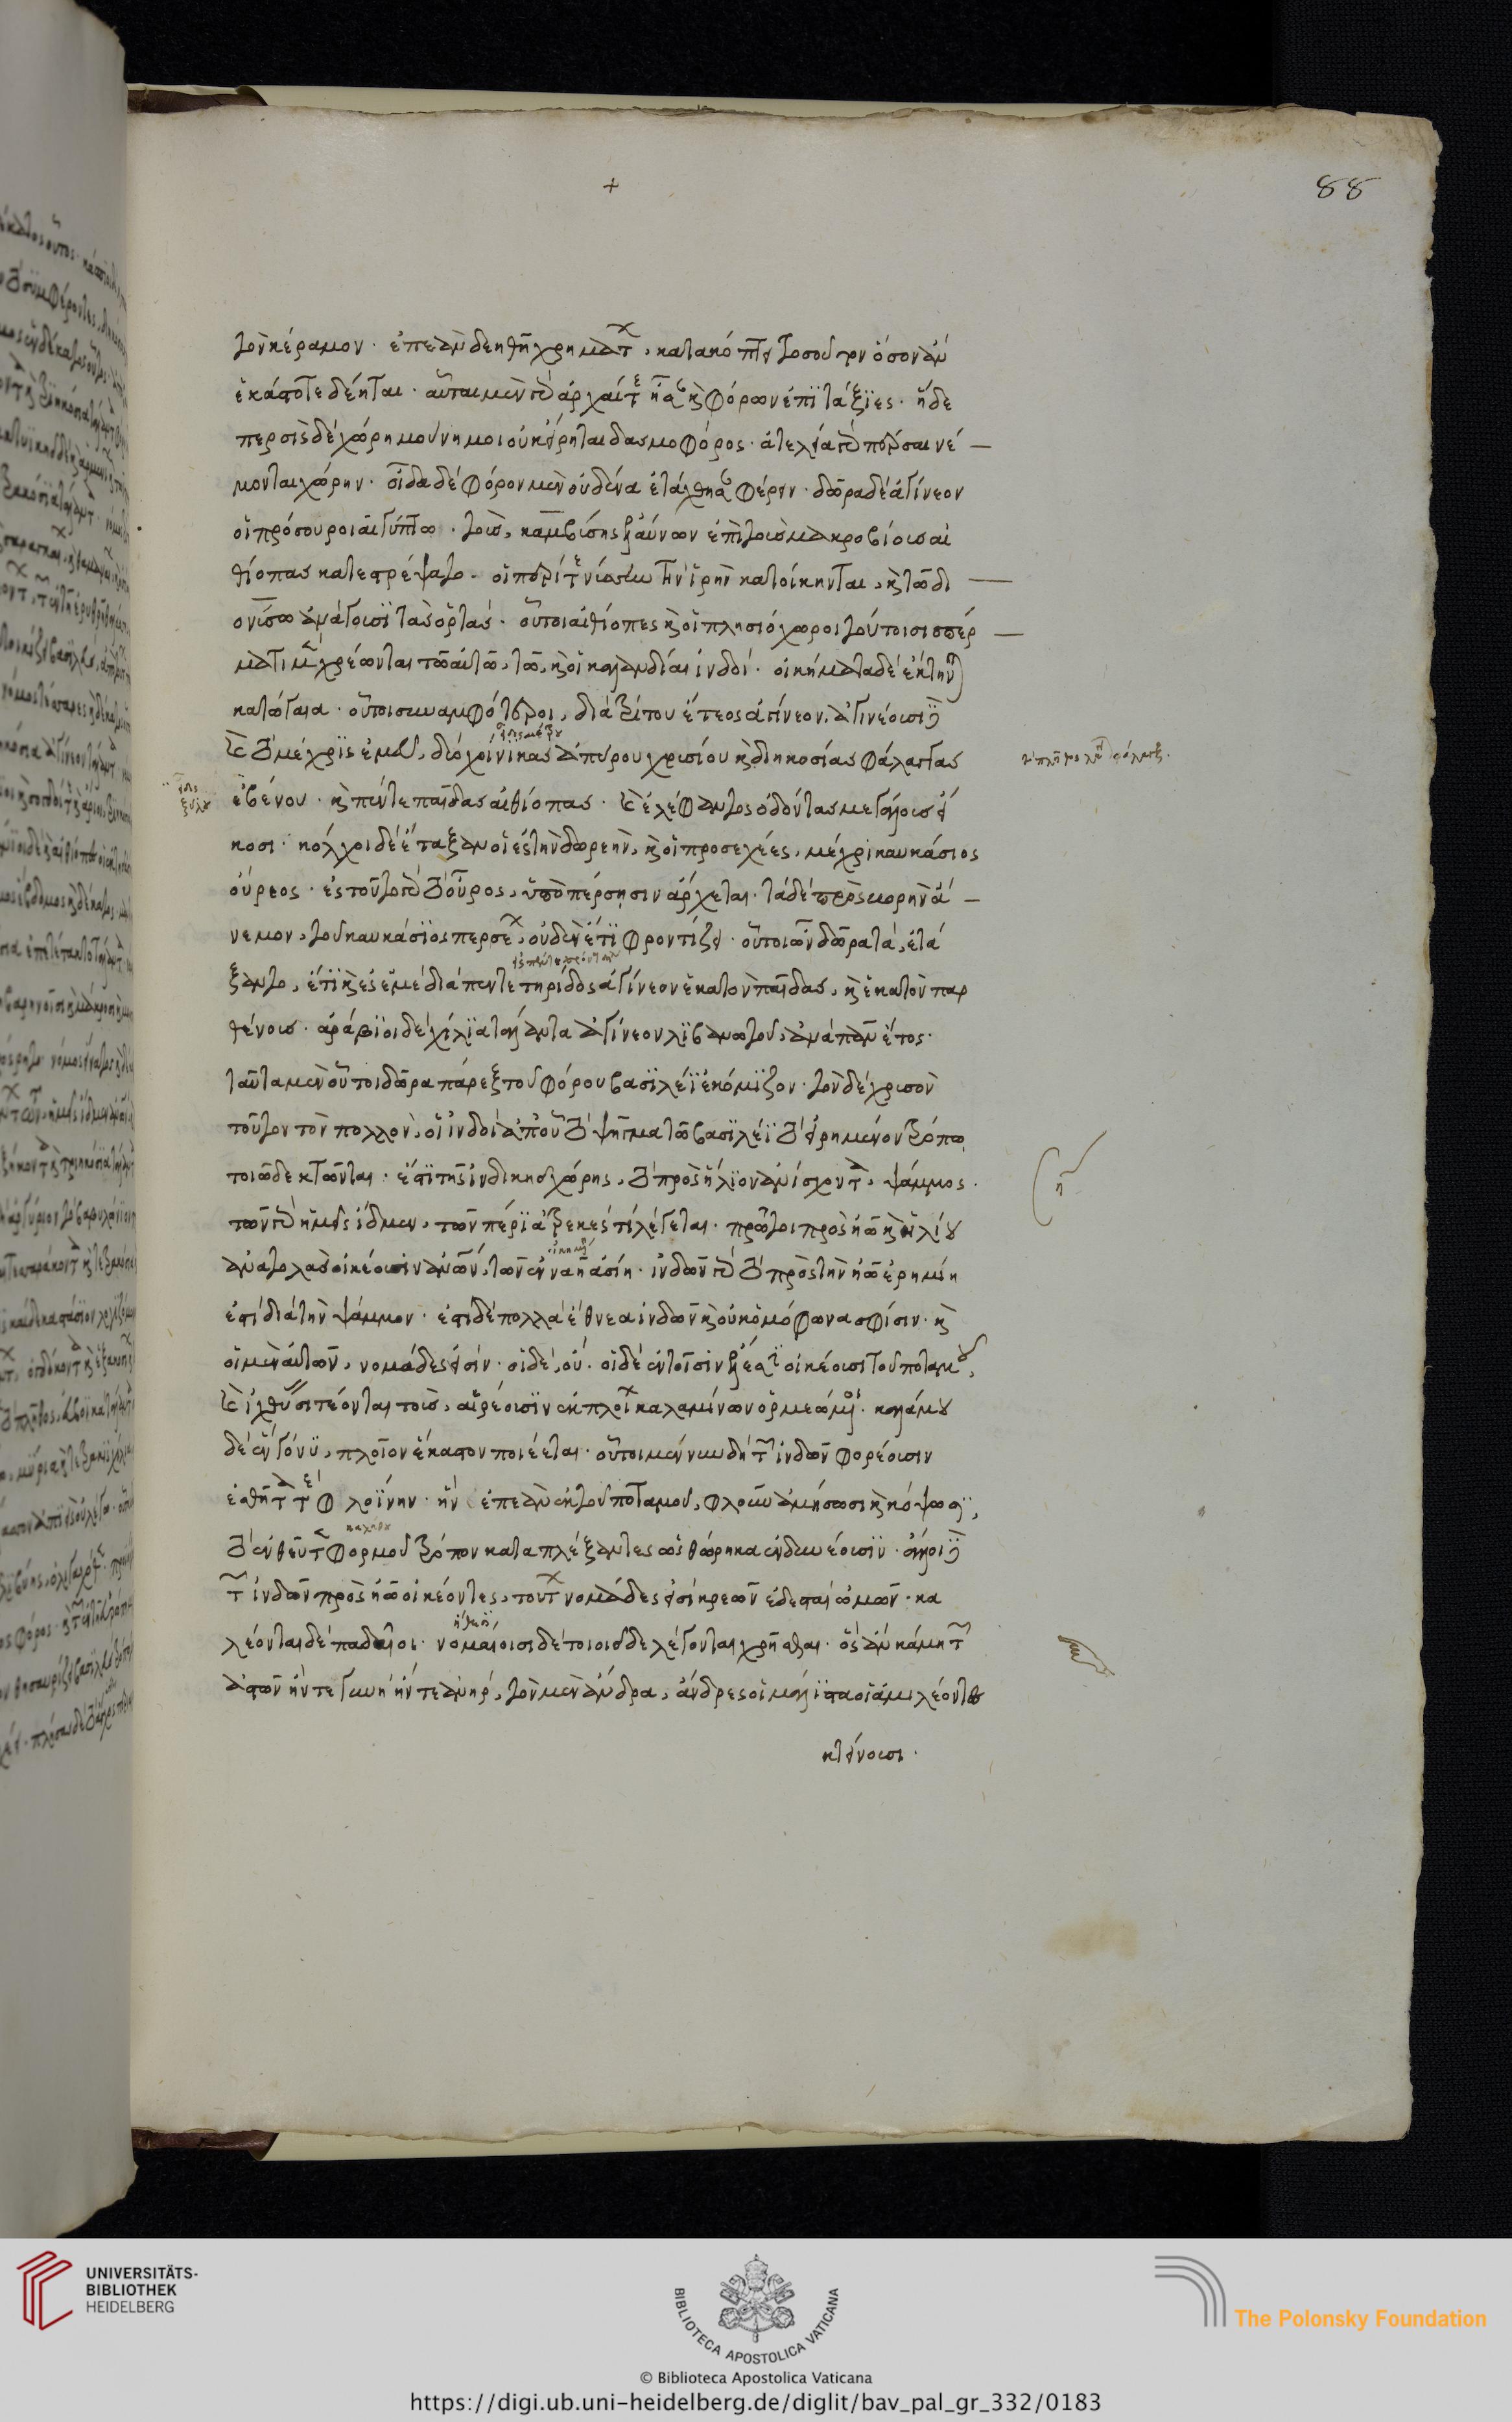 +
88
τὸν κέραμον· ἐπεὰν δεηθῆ χρημάτων, κατακόπτει τοσοῦτον ὅσον ἂν
ἑκάστοτε δέηται· αὗται μὲν δὲ ἀρχαί τε ἦσαν καὶ φόρων ἐπιτάξιες· ἡ δὲ
περσὶς δὲ χώρη μούνη μοι οὐκ εἴρηται δασμοφόρος· ἀτελέα δὲ πέρσαι νέ
μονται χώρην· οἵδε δὲ φόρον μὲν οὐδένα ἐτάχθησαν φέρειν· δῶρα δὲ ἀγίνεον
οἱ πρόσουροι αἰγύπτω· τοὺς, καμβύσης ἐλαύνων ἐπὶ τοὺς μακροβίους αἰ
θίοπας κατεστρέψατο· οἱ περί τε νύσην τὴν ἱρὴν κατοίκηνται, καὶ τῶ δι
ονύσω ἀνάγουσι τὰς ὁρτάς· οὗτοι αἰθίοπες καὶ οἱ πλησιόχωροι τούτοισι σπέρ
ματι μὲν χρέωνται τῶ αὐτῶ, τῶ, καὶ οἱ καλαντίαι ἰνδοί· οἰκήματα δὲ ἔκτηνται
κατώγαια· οὗτοι συναμφότεροι, διὰ τρίτου ἔτεος ἀγίνεον, ἀγινέουσι δὲ
καὶ τὸ μέχρις ἐμοῦ, δύο χοίνικας ἀπύρου χρυσίου καὶ διηκοσίας φάλαγγας
ἐβένου· καὶ πέντε παῖδας αἰθίοπας· καὶ ἐλέφαντος ὀδόντας μεγάλους εἴ
κοσι· κόλχοι δὲ ἐτάξαντο ἐς τὴν δωρεὴν, καὶ οἱ προσεχέες, μέχρι καυκάσιος
οὔρεος· ἐς τοῦτο δὲ τὸ οὖρος, ὑπὸ πέρσησιν ἄρχεται· τὰ δὲ πρὸς βορῆν ἄ
νεμον, τοῦ καυκάσιος περσέων, οὐδὲν ἔτι φροντίζει· οὗτοι ὦν δῶρα τὰ, ἐτά
ξαντο, ἔτι καὶ ἐς ἐμὲ διὰ πεντετηρίδος ἀγίνεον ἑκατὸν παῖδας, καὶ ἑκατὸν παρ
θένους· ἀράβιοι δὲ χίλια τάλαντα ἀγίνεον λιβανωτοῦ, ἀνὰ πᾶν ἔτος·
ταῦτα μὲν οὗτοι δῶρα πάρεξ τοῦ φόρου βασιλέϊ ἐκόμιζον· τὸν δὲ χρυσὸν
τοῦτον τὸν πολλὸν, οἱ ἰνδοὶ ἀπ' οὗ τὸ ψῆγμα τῶ βασιλέϊ τὸ εἰρημένον τρόπω
τοιῶδε κτῶνται· ἔστι τῆς ἰνδικῆς χώρης, τὸ πρὸς ἥλιον ἀνίσχοντα, ψάμμος·
τῶν δὲ ἡμεῖς ἴδμεν, τῶν πέρι ἀτρεκές τι λέγεται· πρῶτοι πρὸς ἠῶ καὶ ἡλίου
ἀνατολὰς οἰκέουσιν ἀνθρώπων, τῶν ἐν τῆ ἀσίη· ἰνδῶν δὲ τὸ πρὸς τὴν ἠῶ ἐρημίη
ἐστὶ διὰ τὴν ψάμμον· ἔστι δὲ πολλὰ ἔθνεα ἰνδῶν καὶ οὐκ ὁμόφωνα σφίσιν· καὶ
οἱ μὲν αὐτῶν, νομάδες εἰσίν· οἱ δὲ, οὔ· οἱ δὲ ἐν τοῖσιν ἕλεσι οἰκέουσι τοῦ ποταμοῦ,
καὶ ἰχθῦς σιτέονται τοὺς, αἱρέουσιν ἐκ πλοίων καλαμίνων ὁρμεώμενοι· καλάμου
δὲ ἓν γόνυ, πλοῖον ἕκαστον ποιέεται· οὗτοι μὲν νῦν δὴ τῶν ἰνδῶν φορέουσιν
ἐσθῆτα τὲ φλοΐνην· ἣν ἐπεὰν ἐκ τοῦ ποταμοῦ, φλοῦν ἀμήσωσι καὶ κόψωσι,
τὸ ἐνθεῦτεν φορμοῦ τρόπον καταπλέξαντες ὡς θώρηκα ἐνδυνέουσιν· ἄλλοι δὲ
τῶν ἰνδῶν πρὸς ἠῶ οἰκέοντες, τούτων νομάδες εἰσὶ κρεῶν ἐδεσταὶ ὠμῶν· κα
λέονται δὲ παδαῖοι· νομαίοισι δὲ τοιοῖσδε λέγονται χρῆσθαι· ὃς ἂν κάμη τῶν
ἀστῶν ἤν τε γυνὴ ἤν τε ἀνὴρ, τὸν μὲν ἄνδρα, ἄνδρες οἱ μάλιστα οἱ ὁμιλέοντες
κτείνουσι·
UNIVERSITÄTS-
BIBLIOTHEK
HEIDELBERG
BIBLIOTECA APOSTOLICA VATICANA
The Polonsky Foundation
© Biblioteca Apostolica Vaticana
https://digi.ub.uni-heidelberg.de/diglit/bav_pal_gr_332/0183